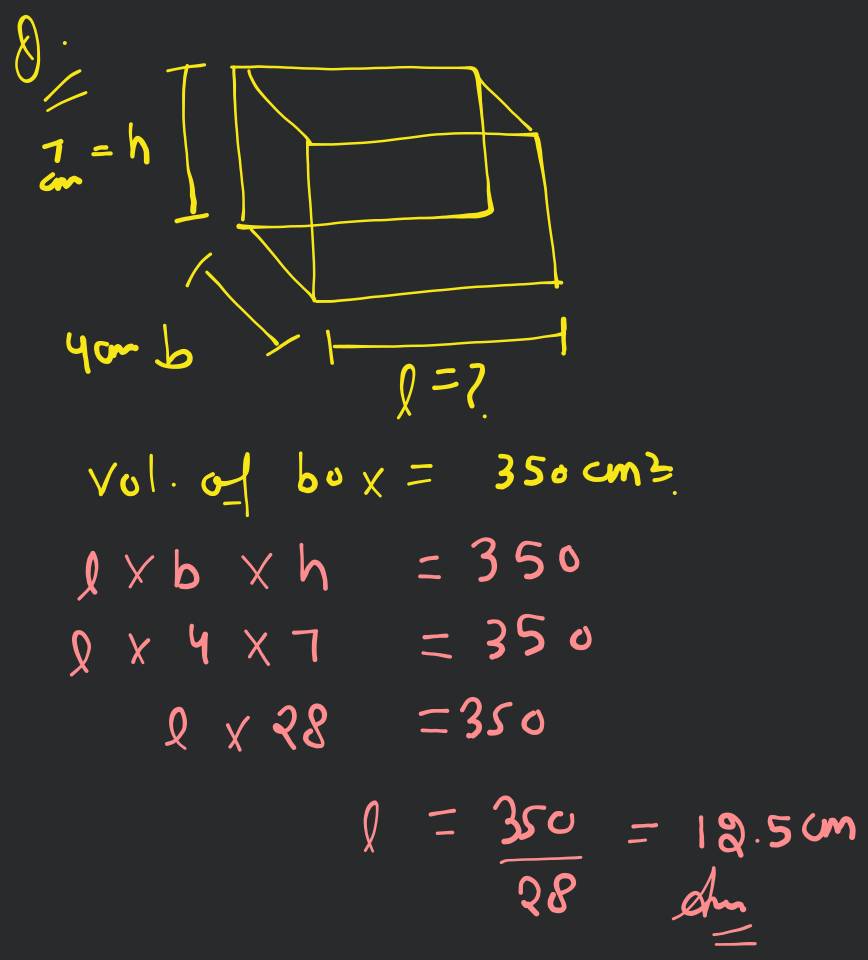 Q.
7 cm = h
4cm b
l = ?
Vol. of box = 350 cm³.
l × b × h = 350
l × 4 × 7 = 350
l × 28 = 350
l = 350/28 = 12.5 cm
Ans